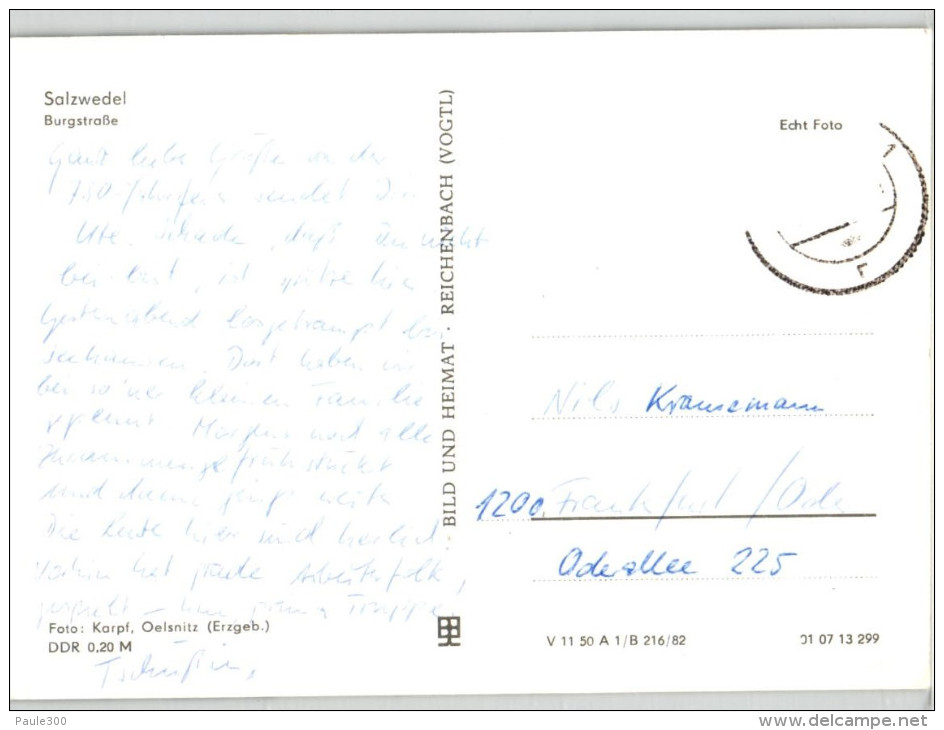 Salzwedel
Burgstraße
Echt Foto
Ganz liebe Grüße von der
750-Jahrfeier sendet Dir
Ute. Schade, daß Du nicht
bei bist, ist spitze hier
Gestern abend losgetrampt
Dort haben wir
bei so 'ner kleinen Familie
gepennt Morgens noch alle
zusammengefrühstückt
und dann ging's weiter
Die Leute hier sind herrlich.
Vorhin hat grade Arbeiterfolk,
gespielt – prima Truppe
Tschüßi,
BILD UND HEIMAT · REICHENBACH (VOGTL)
Nils Kransemann
1200 Frankfurt/Oder
Oderallee 225
Foto: Karpf, Oelsnitz (Erzgeb.)
DDR 0,20 M
V 11 50 A 1/B 216/82
01 07 13 299
Paule300
delcampe.net